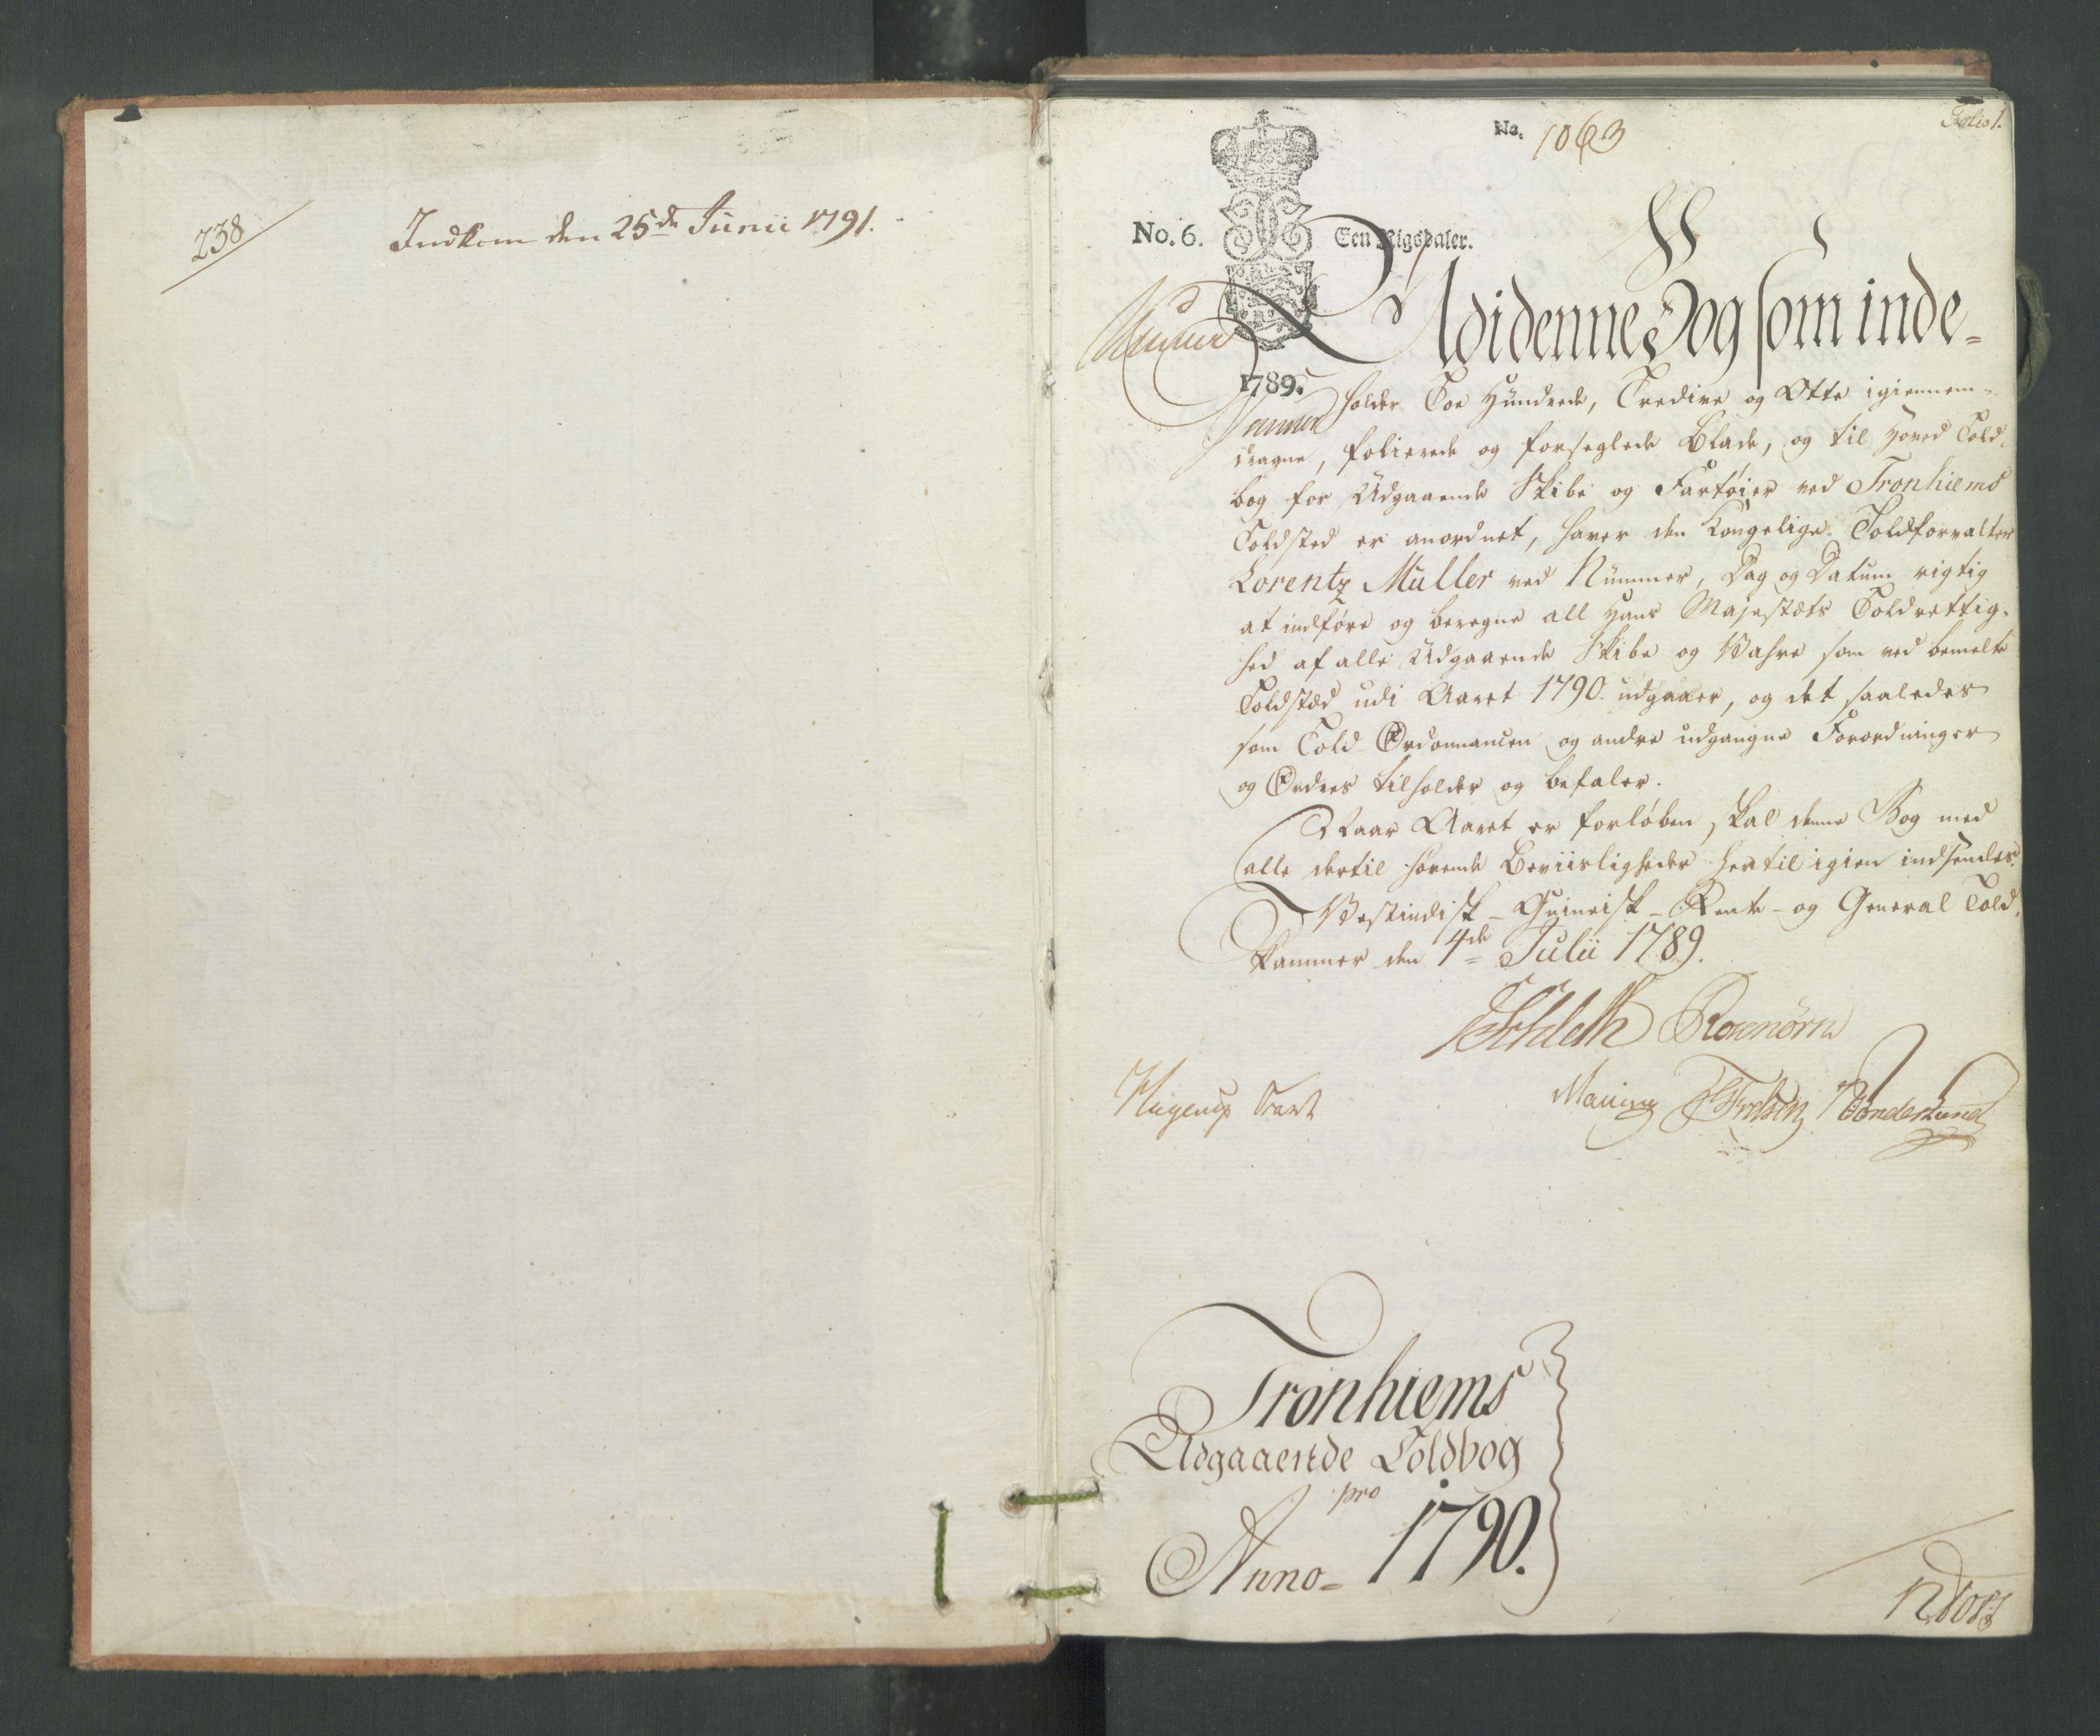 238
Indkom den 25de Junii 1791.
Folio 1.
No. 1063
No. 6.
Een Rigsdaler.
1789.
Udi denne Bog som inde-
holder Toe Hundrede, Tredive og Otte igiennem-
dragne, folierede og forseglede Blade, og til Hoved Told-
bog for Udgaaende Skibe og Fartøier ved Tronhiems
Toldsted er anordnet, haver den Kongelige Toldforvalter
Lorentz Müller ved Nummer, Dag og Datum rigtig
at indføre og beregne all Hans Majestæts Toldrettig-
hed af alle Udgaaende Skibe og Vahre som ved bemelte
Toldstæd udi Aaret 1790 udgaaer, og det saaledes
som Told-Ordonnancen og andre udgangne Forordninger
og Ordres tilholder og befaler.
Naar Aaret er forløben, skal denne Bog med
alle dertil hørende Beviisligheder hertil igien indsendes.
Vestindisk-Guineisk-Rente- og General Told-
Kammer den 4de Julii 1789.
Rosenørn
Tronhiems
Udgaaende Toldbog
pro
Anno- 1790.